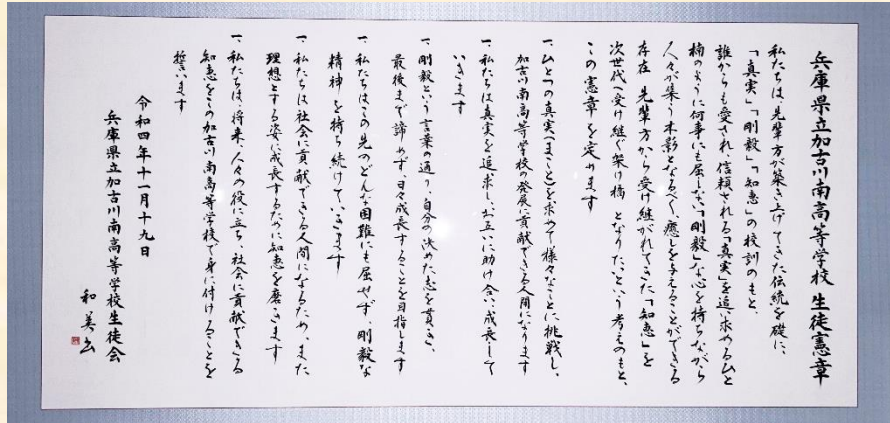 兵庫県立加古川南高等学校 生徒憲章
私たちは、先輩方が築き上げてきた伝統を礎に、
「真実」「剛毅」「知恵」の校訓のもと、
誰からも愛され、信頼される「真実」を追い求めるひと
楠のように何事にも屈しない「剛毅」な心を持ちながら
人々が集う木影となるべく、癒しを与えることができる
存在 先輩方から受け継がれてきた「知恵」を
次世代へ受け継ぐ架け橋 となりたいという考えのもと、
この憲章を定めます
一、ひとつの真実(まこと)を求めて様々なことに挑戦し、
加古川南高等学校の発展に貢献できる人間になります
一、私たちは真実を追求し、お互いに助け合い、成長して
いきます
一、剛毅という言葉の通り、自分の決めた志を貫き、
最後まで諦めず、日々成長することを目指します
一、私たちはこの先のどんな困難にも屈せず、剛毅な
精神を持ち続けていきます
一、私たちは社会に貢献できる人間になるため、また
理想とする姿に成長するために知恵を磨きます
一、私たちは、将来、人々の役に立ち、社会に貢献できる
知恵をこの加古川南高等学校で身に付けることを
誓います
令和四年十一月十九日
兵庫県立加古川南高等学校生徒会
和美書